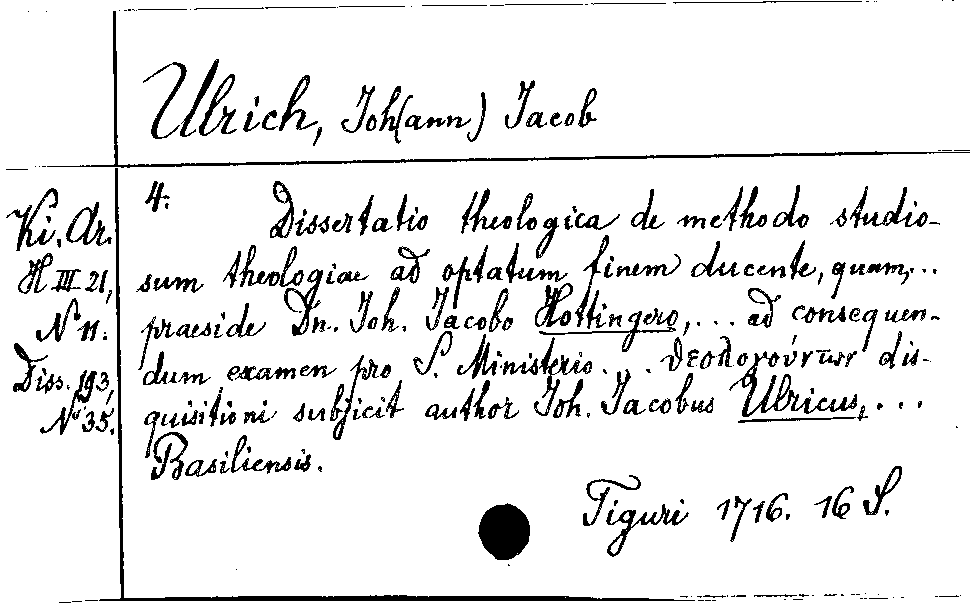 Ulrich, Joh(ann) Jacob
Ki. Ar.
H III 21,
N° 11.
Diss. 193,
N° 35.
4. Dissertatio theologica de methodo studio-
sum theologiae ad optatum finem ducente, quam,...
praeside Dn. Joh. Jacobo Hottingero, ... ad consequen-
dum examen pro S. Ministerio... θεολογούντων dis-
quisitioni subjicit author Joh. Jacobus Ulricus, ...
Basiliensis.
Tiguri 1716. 16 S.